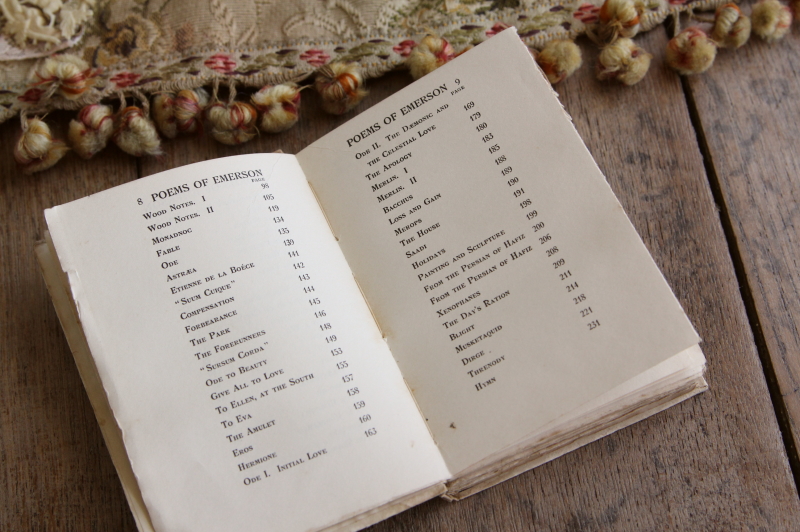 8 POEMS OF EMERSON
PAGE
WOOD NOTES. I 98
WOOD NOTES. II 105
MONADNOC 119
FABLE 134
ODE 135
ASTRÆA 139
ETIENNE DE LA BOÉCE 141
"SUUM CUIQUE" 142
COMPENSATION 143
FORBEARANCE 144
THE PARK 145
THE FORERUNNERS 146
"SURSUM CORDA" 148
ODE TO BEAUTY 149
GIVE ALL TO LOVE 153
TO ELLEN, AT THE SOUTH 155
TO EVA 157
THE AMULET 158
EROS 159
HERMIONE 160
ODE I. INITIAL LOVE 163
POEMS OF EMERSON 9
PAGE
ODE II. THE DÆMONIC AND
THE CELESTIAL LOVE 169
THE APOLOGY 179
MERLIN. I 180
MERLIN. II 183
BACCHUS 185
LOSS AND GAIN 188
MEROPS 189
THE HOUSE 190
SAADI 191
HOLIDAYS 198
PAINTING AND SCULPTURE 199
FROM THE PERSIAN OF HAFIZ 200
FROM THE PERSIAN OF HAFIZ 206
XENOPHANES 208
THE DAY'S RATION 209
BLIGHT 211
MUSKETAQUID 214
DIRGE 218
THRENODY 221
HYMN 231